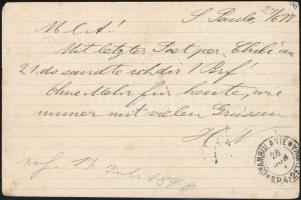 S. Paulo, 27/6 98
M. C. A!
Mit letzter Post per Chili am
21. ds sandte ich dir 1 Brf!
Ohne Mehr für heute, wie
immer mit vielen Grüssen
H. N
11 Juli 1898
AMBULANTE
28 JUN
S.P.